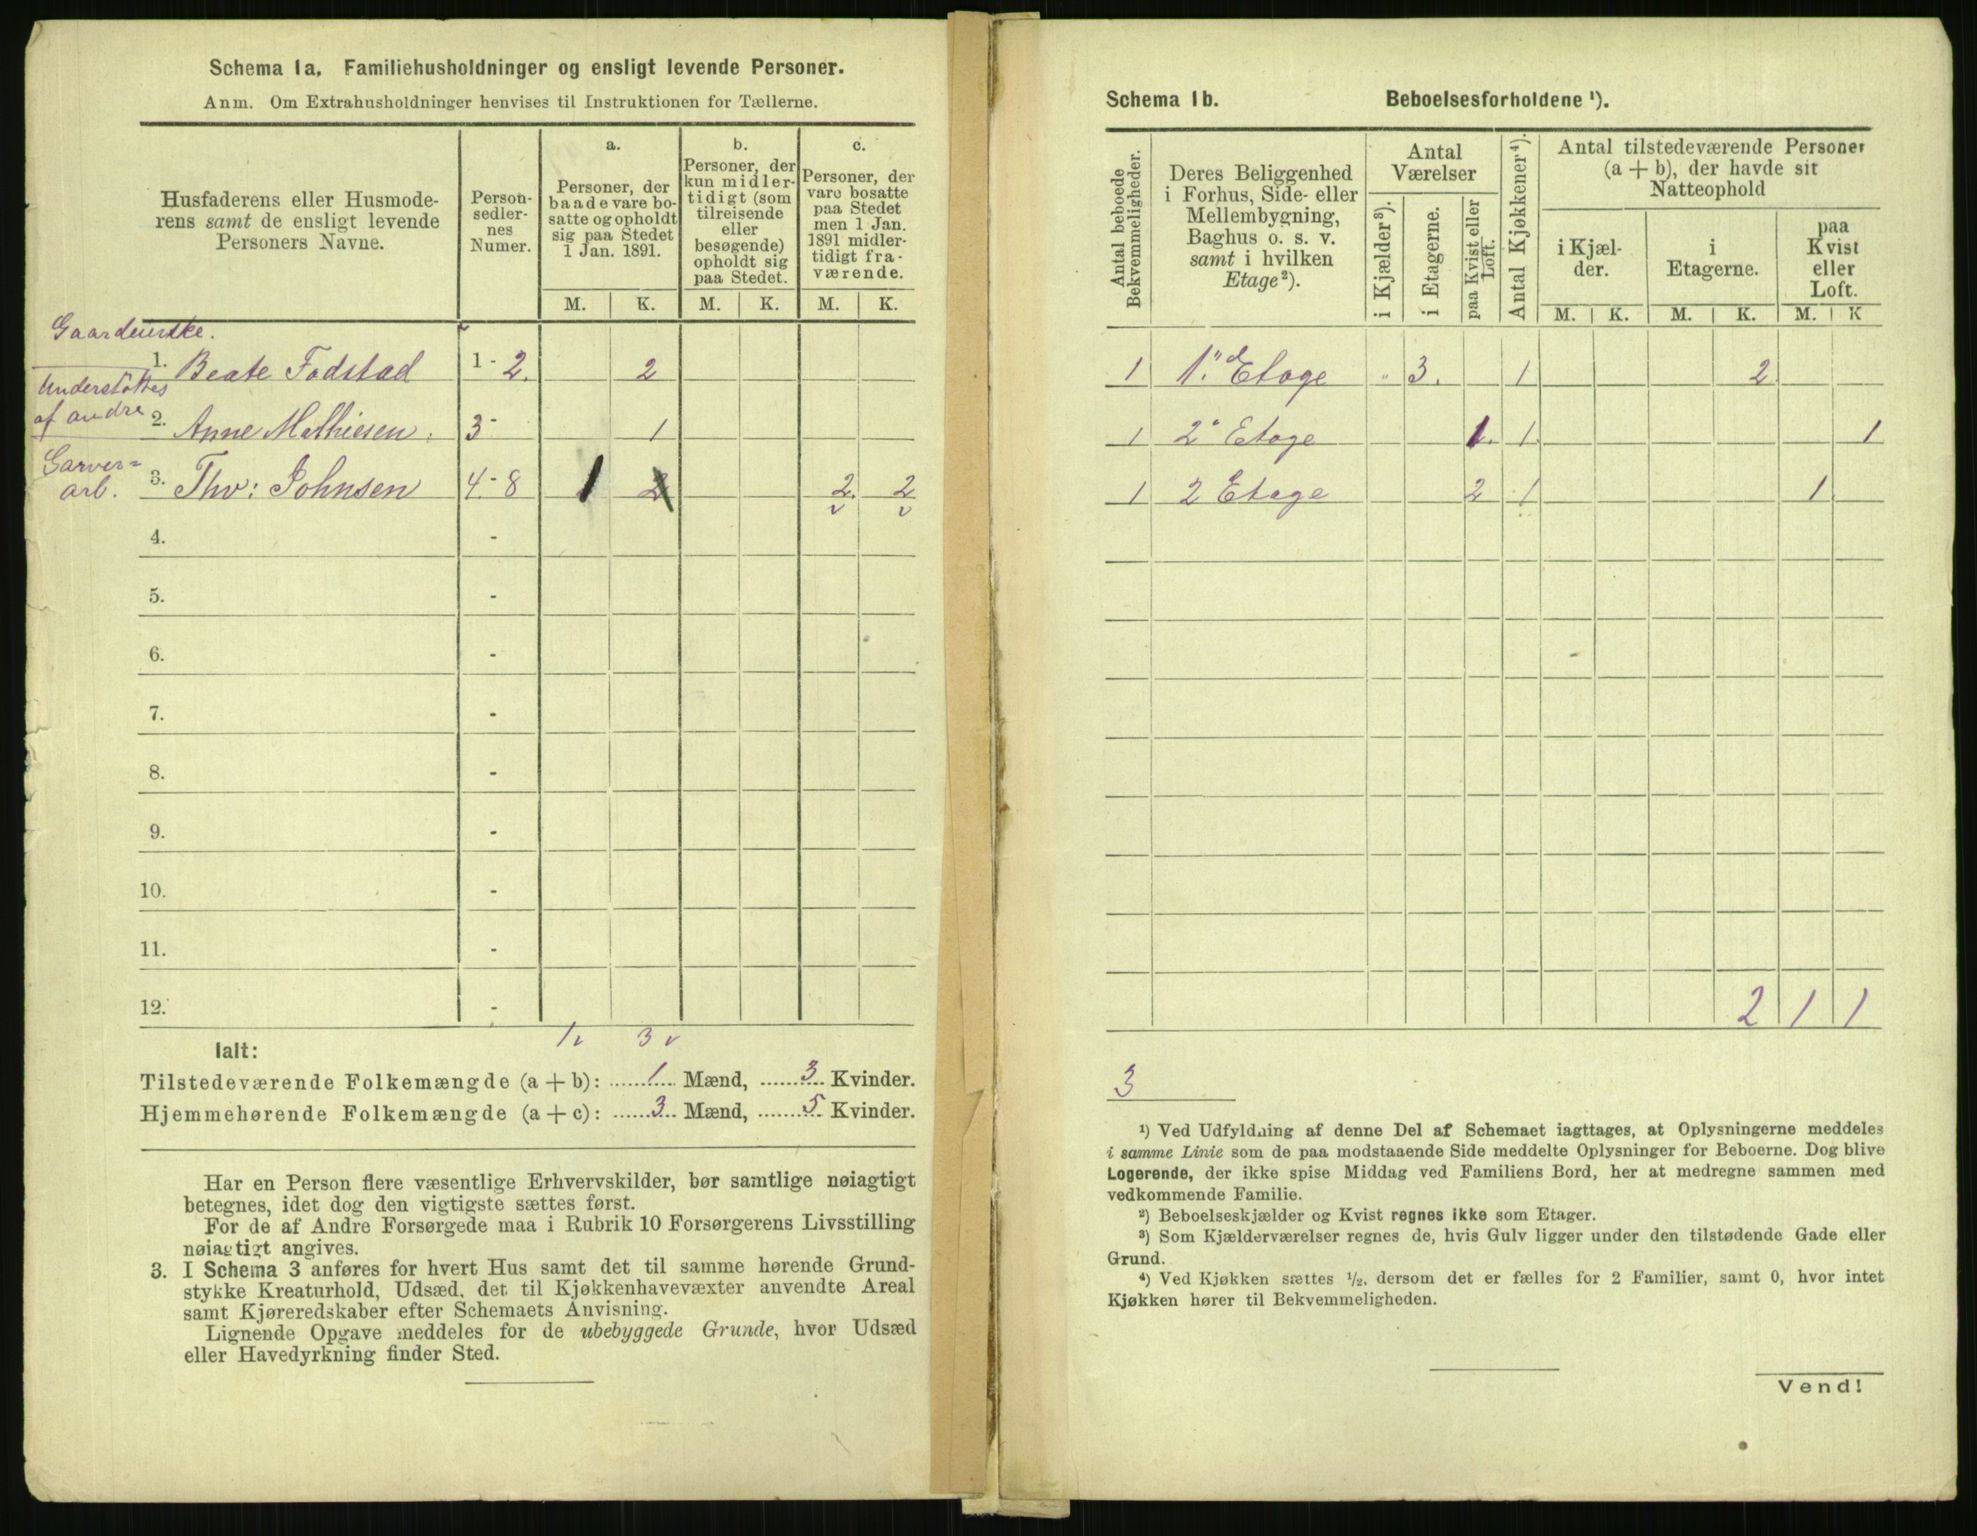 Schema 1a. Familiehusholdninger og ensligt levende Personer.
Anm. Om Extrahusholdninger henvises til Instruktionen for Tællerne.
Husfaderens eller Husmode-
rens samt de ensligt levende
Personers Navne.
Person-
sedler-
nes
Numer.
a.
Personer, der
baade vare bo-
satte og opholdt
sig paa Stedet
1 Jan. 1891.
b.
Personer, der
kun midler-
tidigt (som
tilreisende
eller
besøgende)
opholdt sig
paa Stedet.
c.
Personer, der
vare bosatte
paa Stedet
men 1 Jan.
1891 midler-
tidigt fra-
værende.
M. K. M. K. M. K.
Gaardeierske.
1. Beate Fodstad 1 - 2. 2
Understøttes
af andre
2. Anne Mathiesen. 3 - 1
Garver=
arb.
3. Thv: Johnsen 4 - 8 1 2 2. 2
4. -
5. -
6. -
7. -
8. -
9. -
10. -
11. -
12. -
1 3
Ialt:
Tilstedeværende Folkemængde (a + b): 1 Mænd, 3 Kvinder.
Hjemmehørende Folkemængde (a + c): 3 Mænd, 5 Kvinder.
Har en Person flere væsentlige Erhvervskilder, bør samtlige nøiagtigt
betegnes, idet dog den vigtigste sættes først.
For de af Andre Forsørgede maa i Rubrik 10 Forsørgerens Livsstilling
nøiagtigt angives.
3. I Schema 3 anføres for hvert Hus samt det til samme hørende Grund-
stykke Kreaturhold, Udsæd, det til Kjøkkenhavevæxter anvendte Areal
samt Kjøreredskaber efter Schemaets Anvisning.
Lignende Opgave meddeles for de ubebyggede Grunde, hvor Udsæd
eller Havedyrkning finder Sted.
Schema 1b. Beboelsesforholdene ¹).
Antal beboede
Bekvemmeligheder.
Deres Beliggenhed
i Forhus, Side- eller
Mellembygning,
Baghus o. s. v.
samt i hvilken
Etage²).
Antal
Værelser
i Kjælder³).
i Etagerne.
paa Kvist eller
Loft.
Antal Kjøkkener⁴).
Antal tilstedeværende Personer
(a + b), der havde sit
Natteophold
i Kjæl-
der.
i
Etagerne.
paa
Kvist
eller
Loft.
M. K. M. K. M. K
1 1. Etage " 3. 1 2
1 2 Etage 1. 1. 1
1 2 Etage 2 1 1
2 1 1
3
¹) Ved Udfyldning af denne Del af Schemaet iagttages, at Oplysningerne meddeles
i samme Linie som de paa modstaaende Side meddelte Oplysninger for Beboerne. Dog blive
Logerende, der ikke spise Middag ved Familiens Bord, her at medregne sammen med
vedkommende Familie.
²) Beboelseskjælder og Kvist regnes ikke som Etager.
³) Som Kjælderværelser regnes de, hvis Gulv ligger under den tilstødende Gade eller
Grund.
⁴) Ved Kjøkken sættes ½, dersom det er fælles for 2 Familier, samt 0, hvor intet
Kjøkken hører til Bekvemmeligheden.
Vend!